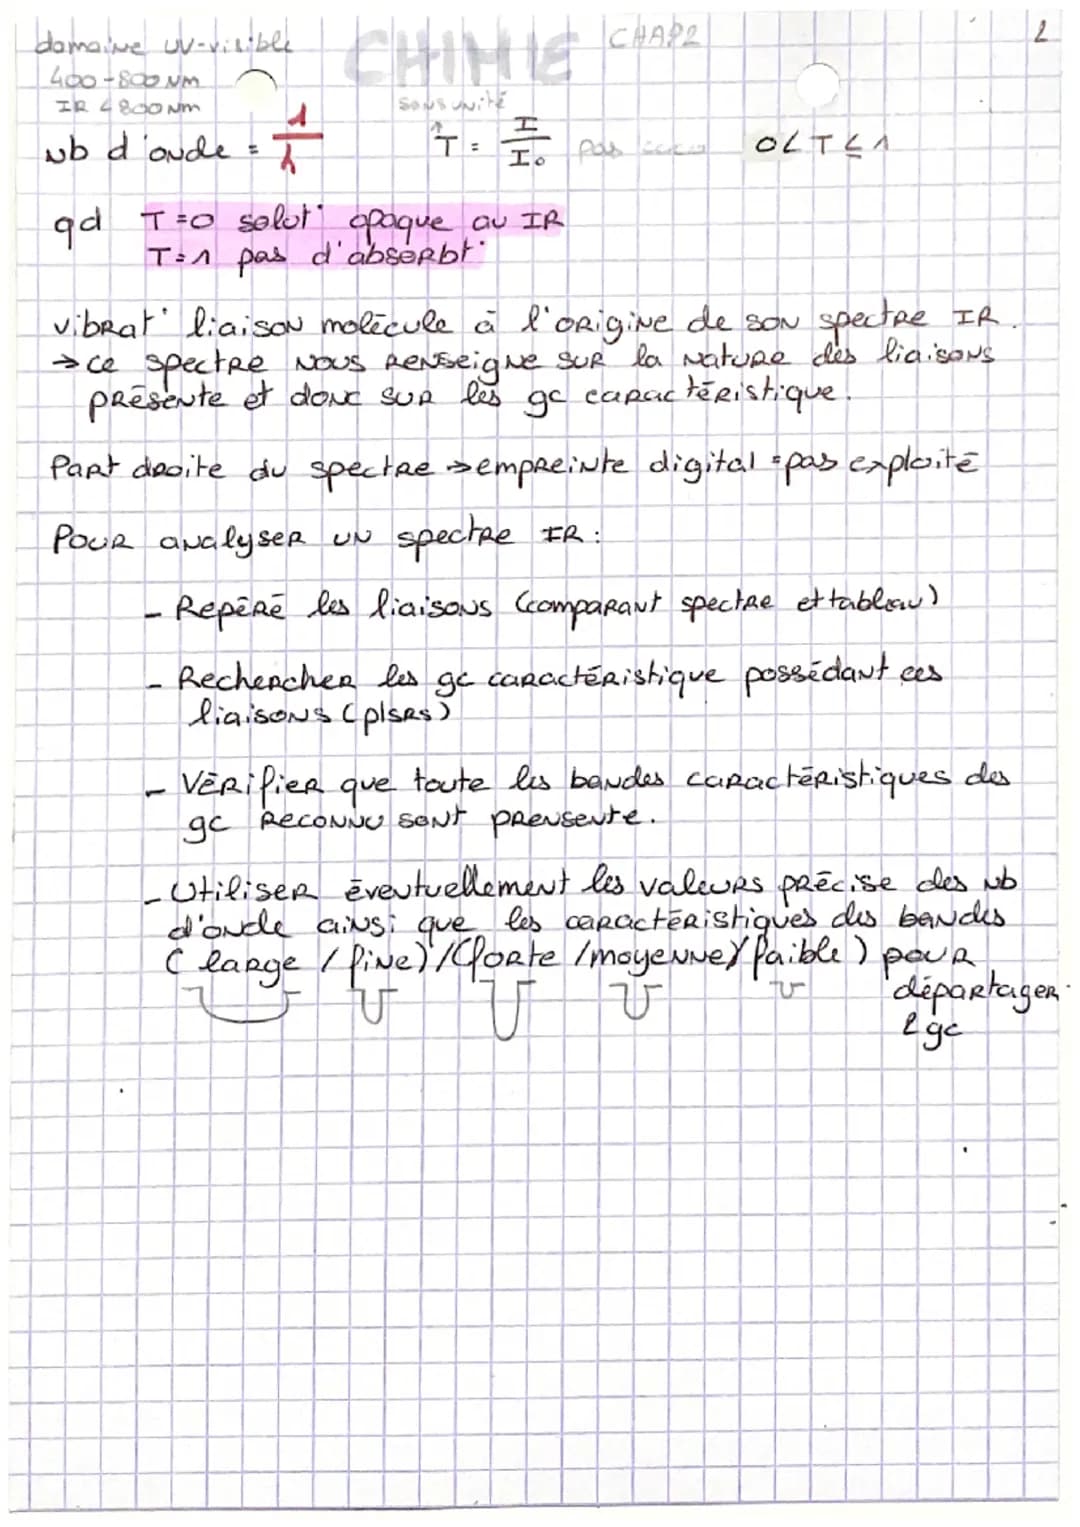 domaine UV-visible CHIMIE CHAP2 2
400-800 nm
IR < 800 nm sans unité
nb d'onde = 1/λ T = I/I₀ pas 0 < T ≤ 1
qd T=0 solut° opaque au IR
T=1 pas d'absorbt°
vibrat° liaison molécule à l'origine de son spectre IR.
→ ce spectre nous renseigne sur la nature des liaisons
présente et donc sur les gc caractéristique.
Part droite du spectre → empreinte digital = pas exploité
Pour analyser un spectre IR :
- Repéré les liaisons (comparant spectre et tableau)
- Rechercher les gc caractéristique possédant ces
liaisons (plsrs)
- Vérifier que toute les bandes caractéristiques des
gc reconnu sont prensente.
- Utiliser éventuellement les valeurs précise des nb
d'onde ainsi que les caractéristiques des bandes
(large / fine) / (forte / moyenne / faible) pour
départager
2 gc